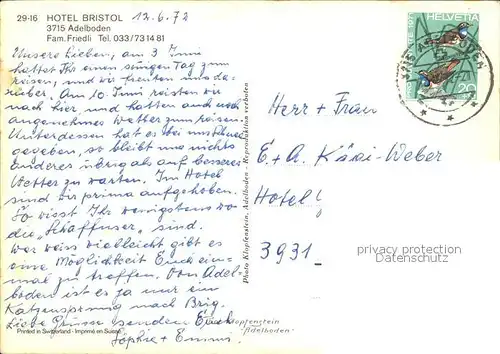 29-16 HOTEL BRISTOL 12.6.72
3715 Adelboden
Fam. Friedli Tel. 033/73 14 81
Unsere Lieben, am 3 Juni
hattet Ihr einen Tag zum
reisen, und wir freuten uns da-
rüber. Am 10. Juni reisten wir
nach hier und hatten auch noch
angenehmes Wetter zum reisen.
Unterdessen hat es bei uns
gegeben, so bleibt uns nichts
anderes übrig als auf besseres
Wetter zu warten. Im Hotel
sind wir prima aufgehoben.
So wisst Ihr wenigstens wo
die "Schaffuser" sind.
Wer weiss vielleicht gibt es
eine Möglichkeit Euch ein-
mal zu treffen. Von Adel-
boden ist es ja nur ein
Katzensprung nach Brig.
Liebe Grüsse senden Euch
Sophie + Emmi
Printed in Switzerland - Imprimé en Suisse
Klopfenstein
"Adelboden"
Photo Klopfenstein, Adelboden - Reproduktion verboten
HELVETIA
20
3715 ADELBODEN
Herr + Frau
E. + A. Käsi-Weber
Hotel
3931
privacy protection
Datenschutz